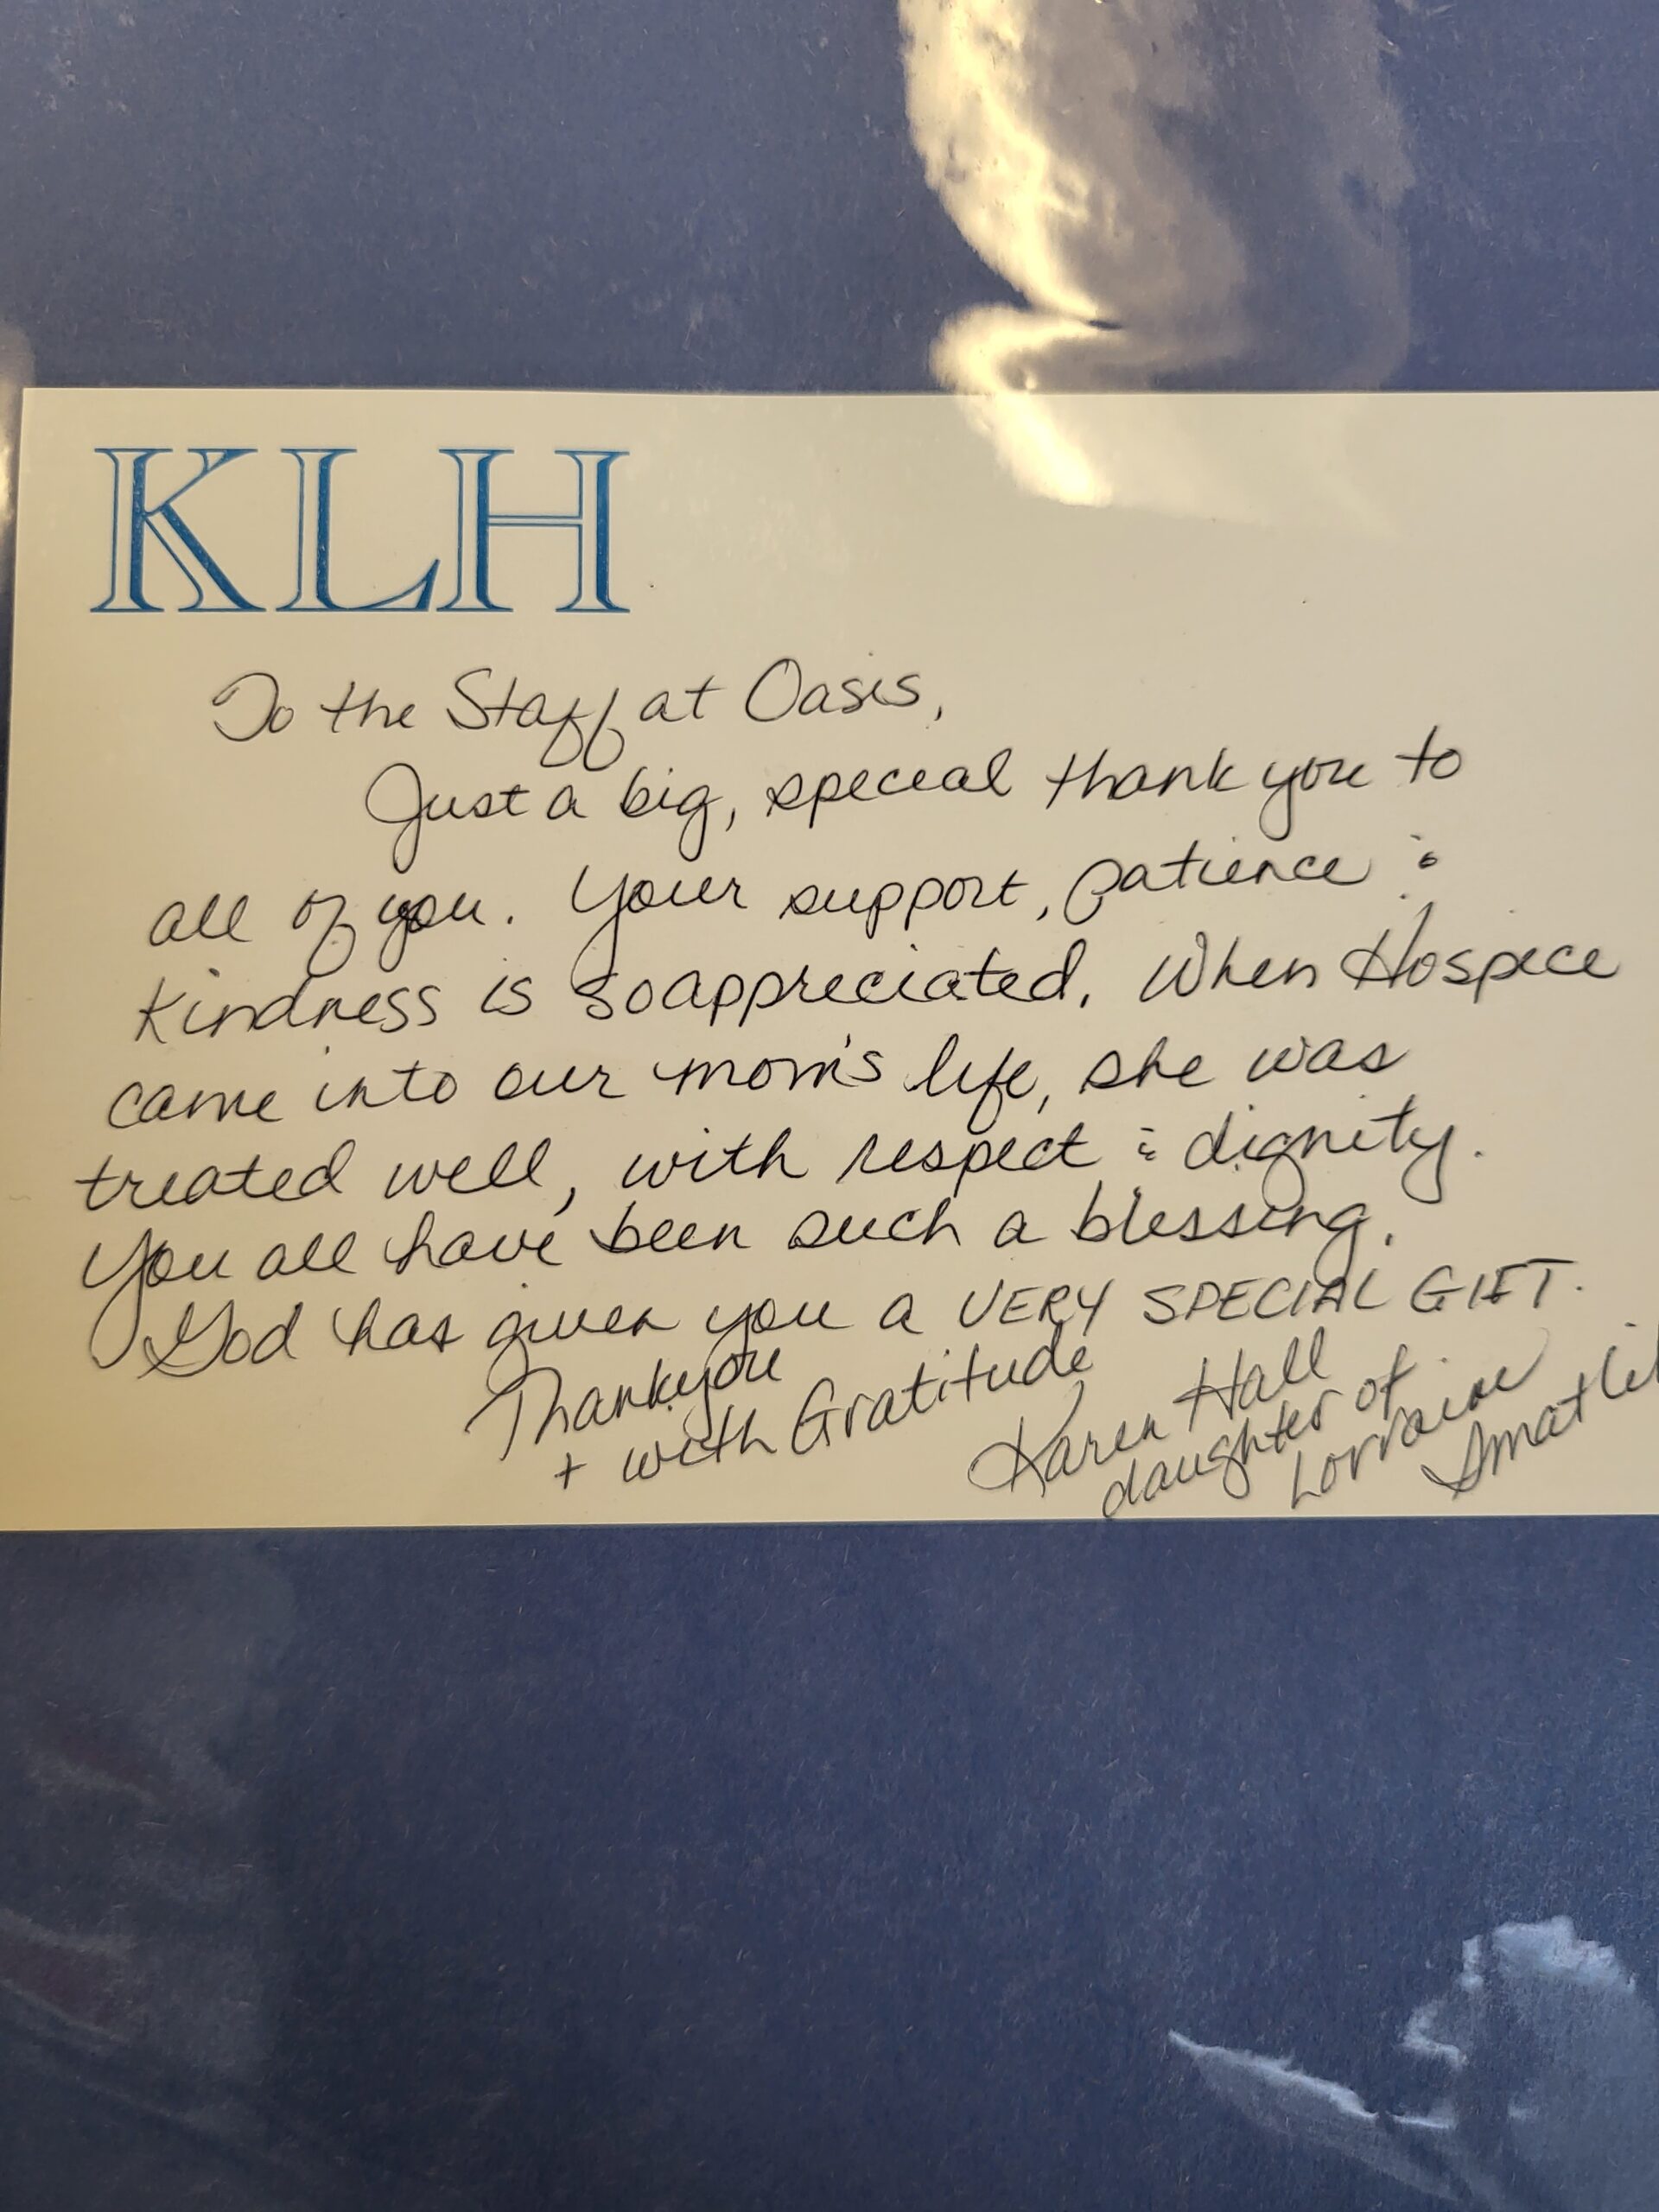 KLH
To the Staff at Oasis,
Just a big, special thank you to
all of you. Your support, patience &
kindness is so appreciated. When Hospice
came into our mom's life, she was
treated well, with respect & dignity.
You all have been such a blessing.
God has given you a VERY SPECIAL GIFT.
Thank you
+ with Gratitude
Karen Hall
daughter of
Lorraine